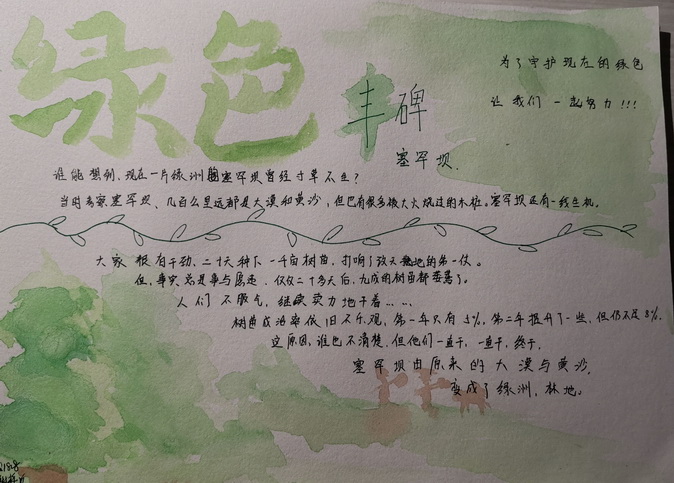 绿色丰碑
塞罕坝
为了守护现在的绿色
让我们一起努力!!!
谁能想到,现在一片绿洲的塞罕坝曾经寸草不生?
当时考察塞罕坝、几百公里远都是大漠和黄沙,但也有很多被大火烧过的木桩。塞罕坝还有一线生机。
大家很有干劲,二十天种下一千亩树苗,打响了改天换地的第一仗。
但,事实总是事与愿违,仅仅二十多天后,九成的树苗都枯了。
人们不服气,继续卖力地干着……
树苗成活率依旧不乐观,第一年只有5%,第二年提升了一些,但仍不足8%。
这原因,谁也不清楚,但他们一直干,一直干,终于,
塞罕坝由原来的大漠与黄沙,
变成了绿洲,林地。